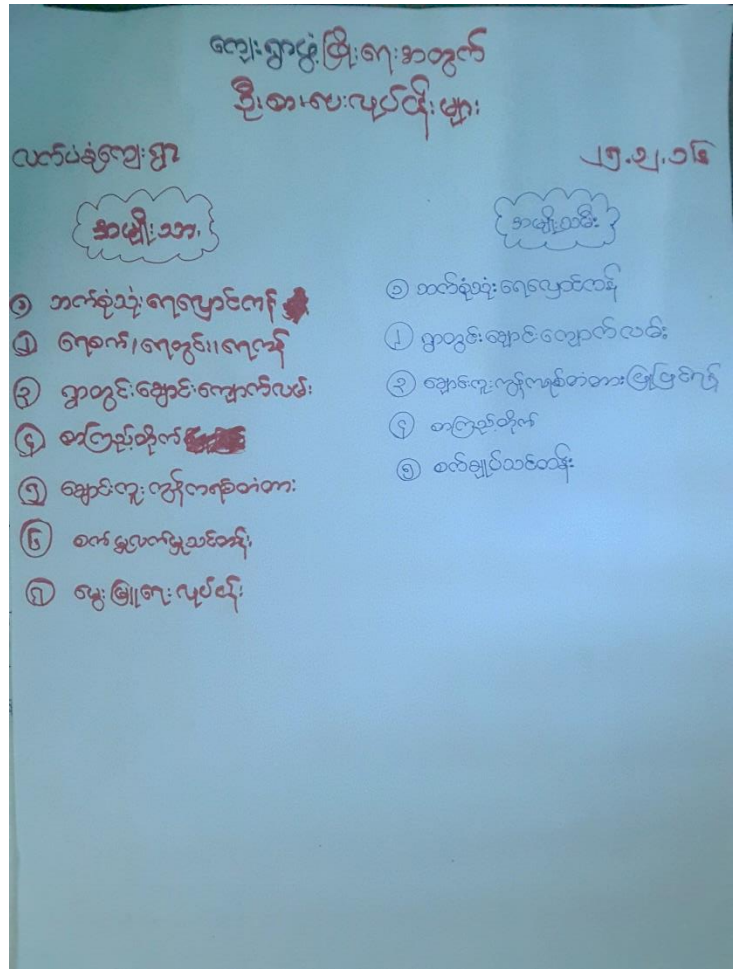 ကျေးရွာဖွံ့ဖြိုးရေးအတွက်
ဦးစားပေးလုပ်ငန်းများ
လက်ပံစုံကျေးရွာ
၂၅.၃.၁၆
အမျိုးသား
① ဘက်စုံသုံးရေလှောင်ကန်
၂ ရေစက်/ရေတွင်း၊ရေကန်
၃ ရွာတွင်းချောင်းကျောက်လမ်း
၄ စာကြည့်တိုက်
၅ ချောင်းကူးကွန်ကရစ်တံတား
၆ စက်မှုလက်မှုသင်တန်း
၇ မွေးမြူရေးလုပ်ငန်း
အမျိုးသမီး
၁ ဘက်စုံသုံးရေလှောင်ကန်
၂ ရွာတွင်းချောင်းကျောက်လမ်း
၃ ချောင်းကူးကွန်ကရစ်တံတားပြုပြင်ရန်
၄ စာကြည့်တိုက်
၅ စက်ချုပ်သင်တန်း